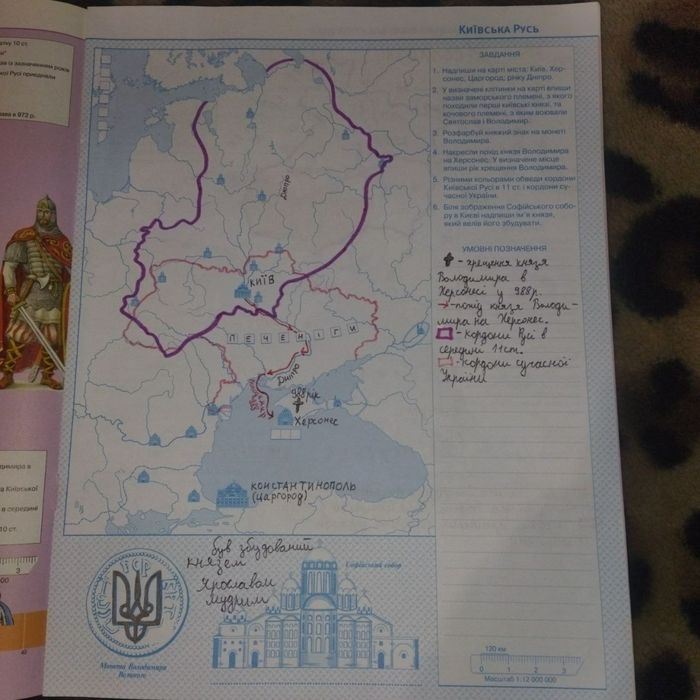 КИЇВСЬКА РУСЬ
ЗАВДАННЯ
1. Надпиши на карті міста: Київ, Хер-
сонес, Царгород; річку Дніпро.
2. У визначені клітинки на карті впиши
назви заморського племені, з якого
походили перші київські князі, та
кочового племені, з яким воювали
Святослав і Володимир.
3. Розфарбуй княжий знак на монеті
Володимира.
4. Накресли похід князя Володимира
на Херсонес. У визначене місце
впиши рік хрещення Володимира.
5. Різними кольорами обведи кордони
Київської Русі в 11 ст. і кордони су-
часної України.
6. Біля зображення Софійського собо-
ру в Києві надпиши ім'я князя,
який велів його збудувати.
УМОВНІ ПОЗНАЧЕННЯ
- хрещення князя
Володимира в
Херсонесі у 988р.
- похід князя Володи-
мира на Херсонес.
- Кордони Русі в
середині 11 ст.
- Кордони сучасної
України
Дніпро
КИЇВ
ПЕЧЕНІГИ
Дніпро
988 рік
Херсонес
КОНСТАНТИНОПОЛЬ
(Царгород)
був збудований
князем
Ярославом
Мудрим
Софійський собор
Монета Володимира
Великого
120 км
0 1 2 3
Масштаб 1:12 000 000
атку 10 ст.
ав із зазначенням років
кої Русі приєднали
ава в 972 р.
одимира в
а Київської
в середині
10 ст.
3
00
40